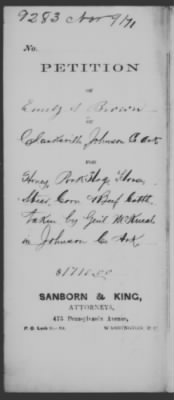 9283 Nov 9/71
No.
PETITION
OF
Emily S Brown
OF
Clarksville Johnson Co Ark
FOR
Honey Pork Hogs
Steer Corn Beef Cattle
Taken by Genl McNeil
in Johnson Co Ark
$1711.00
SANBORN & KING,
ATTORNEYS,
475 Pennsylvania Avenue,
P. O. Lock Box
WASHINGTON, D. C.